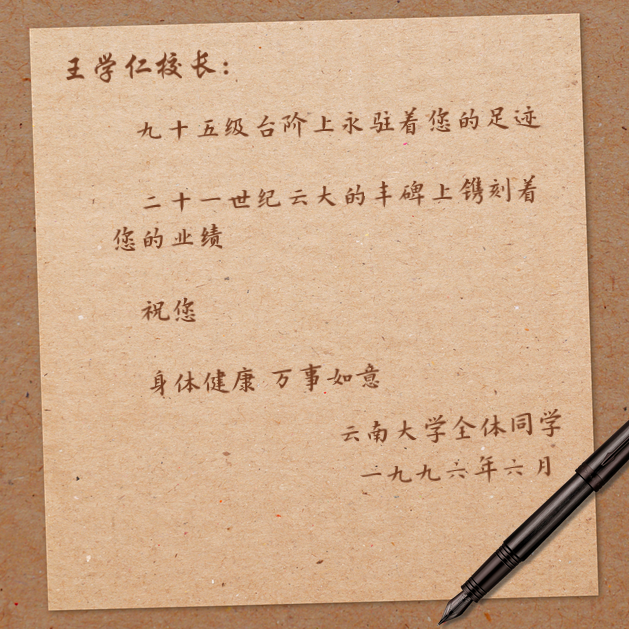 王学仁校长：
九十五级台阶上永驻着您的足迹
二十一世纪云大的丰碑上镌刻着
您的业绩
祝您
身体健康 万事如意
云南大学全体同学
一九九六年六月